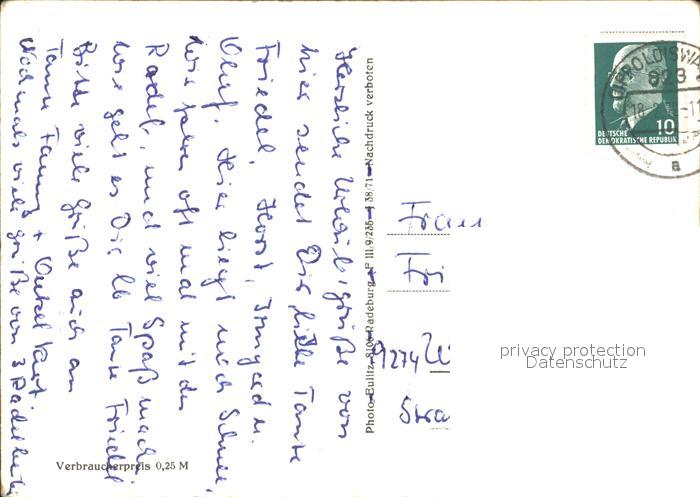 Herzliche Urlaubsgrüße von
hier sendet Dir liebe Tante
Friedel, Horst, Irmgard u.
Olaf. Hier liegt noch Schnee,
wir fahren oft mal mit den
Radel, und viel Spaß macht
Wie geht es Dir lb Tante Friedel
Bitte viele Grüße auch an
Tante Fanny + Onkel Kurt.
Nochmals viele Grüße von 3
Photo-Eulitz, 8106 Radeburg - P III/9/235 - J 38/71 - Nachdruck verboten
Verbraucherpreis 0,25 M
DIPPOLDISWA
823
18
a
10
DEUTSCHE
DEMOKRATISCHE REPUBLIK
Frau
9274
Stra
privacy protection
Datenschutz